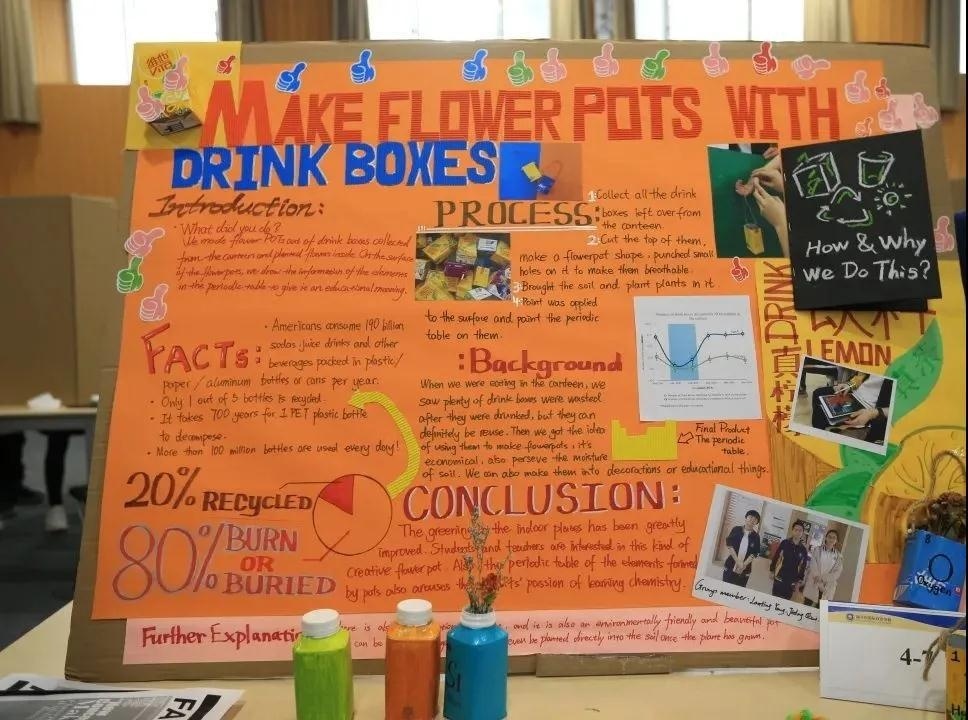 MAKE FLOWER POTS WITH
DRINK BOXES
Introduction:
• What did you do?
We made flower POTs out of drink boxes collected
from the canteen and planted flowers inside. On the surface
of the flowerpots, we draw the information of the elements
in the periodic table to give is an educational meaning.
PROCESS:
1. Collect all the drink
boxes left over from
the canteen.
2. Cut the top of them,
make a flowerpot shape, punched small
holes on it to make them breathable.
3. Brought the soil and plant plants in it.
4. Paint was applied
to the surface and paint the periodic
table on them.
How & Why
we Do This?
FACTs:
• Americans consume 190 billion
sodas juice drinks and other
beverages packed in plastic/
paper / aluminum bottles or cans per year.
• Only 1 out of 5 bottles is recycled.
• It takes 700 years for 1 PET plastic bottle
to decompose.
• More than 100 million bottles are used every day!
20% RECYCLED
80% BURN
OR
BURIED
:Background
When we were eating in the canteen, we
saw plenty of drink boxes were wasted
after they were drunked, but they can
definitely be reuse. Then we got the idea
of using them to make flowerpots, it's
economical, also perseve the moisture
of soil. We can also make them into decorations or educational things.
Final Product
The periodic
table.
DRINK
LEMON
CONCLUSION:
The greening the indoor places has been greatly
improved. Students and teachers are interested in this kind of
creative flower pot. Also the periodic table of the elements formed
by pots also arouses the passion of learning chemistry.
Group member:
Further Explanation
is also and it is also an environmentally friendly and beautiful pot
can be even be planted directly into the soil once the plant has grown.
Si
8
O
Oxygen
4-
1
FA